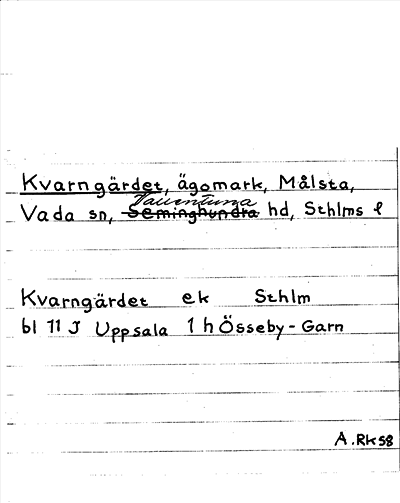 Kvarngärdet, ägomark, Målsta,
Vada sn, Vallentuna Seminghundra hd, Sthlms l
Kvarngärdet ek Sthlm
bl 11 J Uppsala 1 h Össeby-Garn
A. RK58